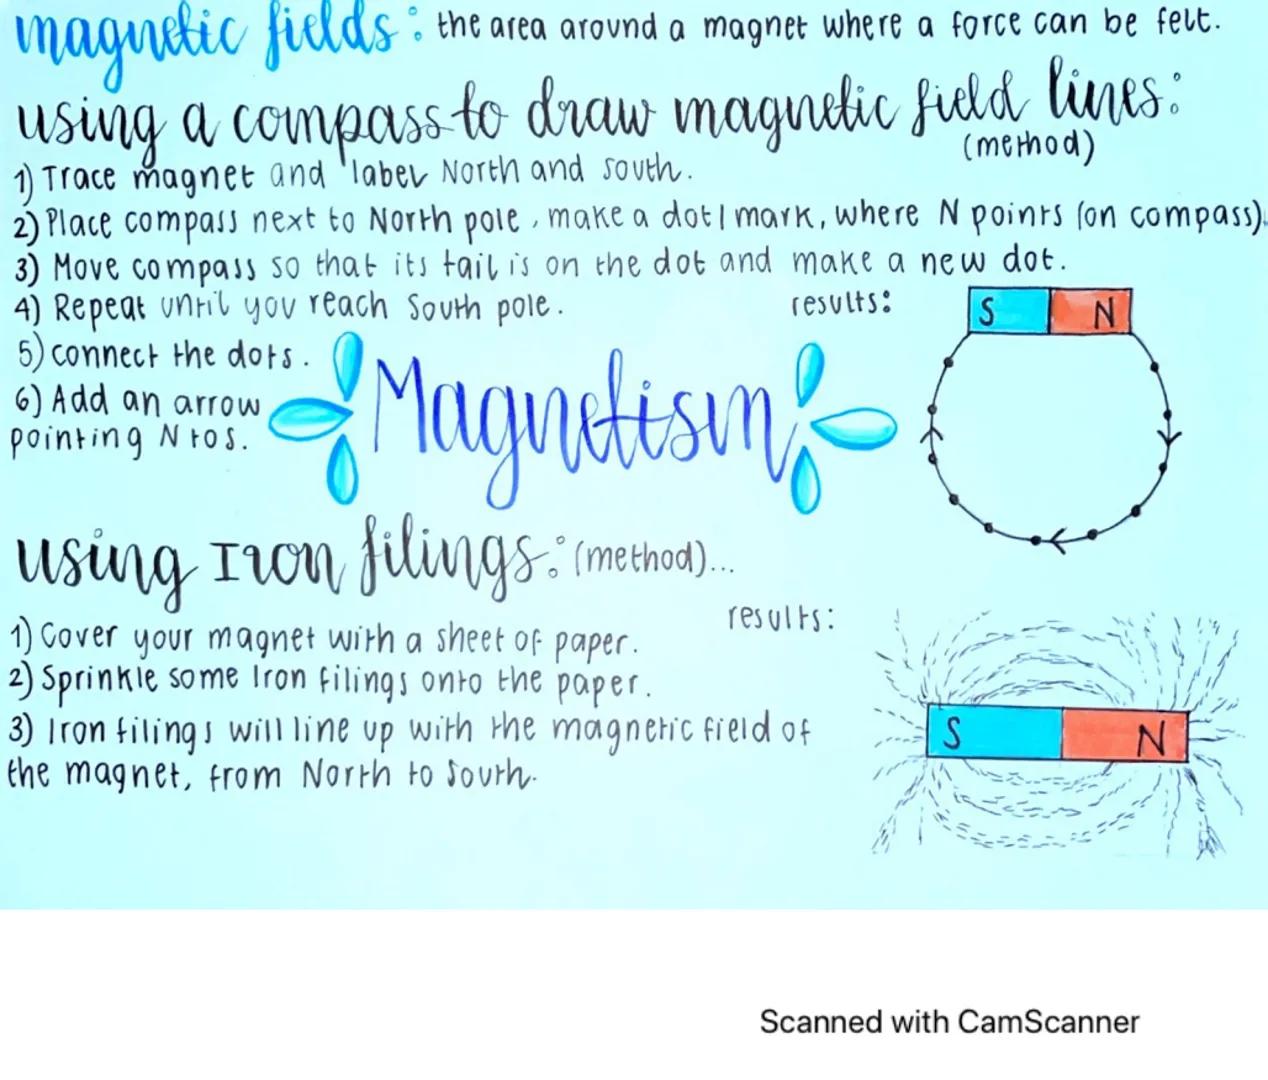 magnetic fields: the area around a magnet where a force can be felt.
using a compass to draw magnetic field lines:
(method)
1) Trace magnet and label North and south.
2) Place compass next to North pole, make a dot/mark, where N points (on compass).
3) Move compass so that its tail is on the dot and make a new dot.
4) Repeat until you reach South pole.
results:
S N
5) connect the dots.
6) Add an arrow
pointing N to S.
Magnetism
using Iron filings: (method)...
results:
1) Cover your magnet with a sheet of paper.
2) Sprinkle some Iron filings onto the paper.
3) Iron filings will line up with the magnetic field of
the magnet, from North to South.
S N
Scanned with CamScanner